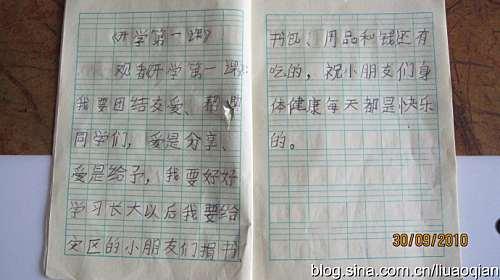 《开学第一课》
观看开学第一课:
我要团结友爱、帮助
同学们,爱是分享、
爱是给予,我要好好
学习长大以后我要给
灾区的小朋友们捐书
书包、用品和钱还有
吃的,祝小朋友们身
体健康每天都是快乐
的。
30/09/2010
blog.sina.com.cn/liuaoqian